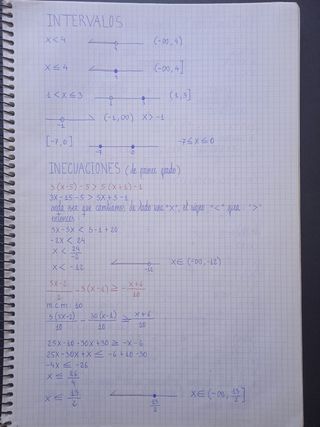 INTERVALOS
x < 4 4 (-∞, 4)
x ≤ 4 4 (-∞, 4]
1 < x ≤ 3 1 3 (1, 3]
-1 (-1, ∞) x > -1
[-7, 0] -7 0 -7 ≤ x ≤ 0
INECUACIONES (de primer grado)
3(x-5)-5 > 5(x+1)-1
3x-15-5 > 5x+5-1
cada vez que cambiamos de lado una "x", el signo "<" gira ">"
entonces
3x-5x < 5-1+20
-2x < 24
x < 24/-2
x < -12 -12 x ∈ (-∞, -12)
5x-2/2 - 3(x-1) ≥ - x+6/10
m.c.m 10
5(5x-2)/10 - 30(x-1)/10 ≥ x+6/10
25x-10-30x+30 ≥ -x-6
25x-30x+x ≤ -6+10-30
-4x ≤ -26
x ≤ 26/4
x ≤ 13/2 13/2 x ∈ (-∞, 13/2]